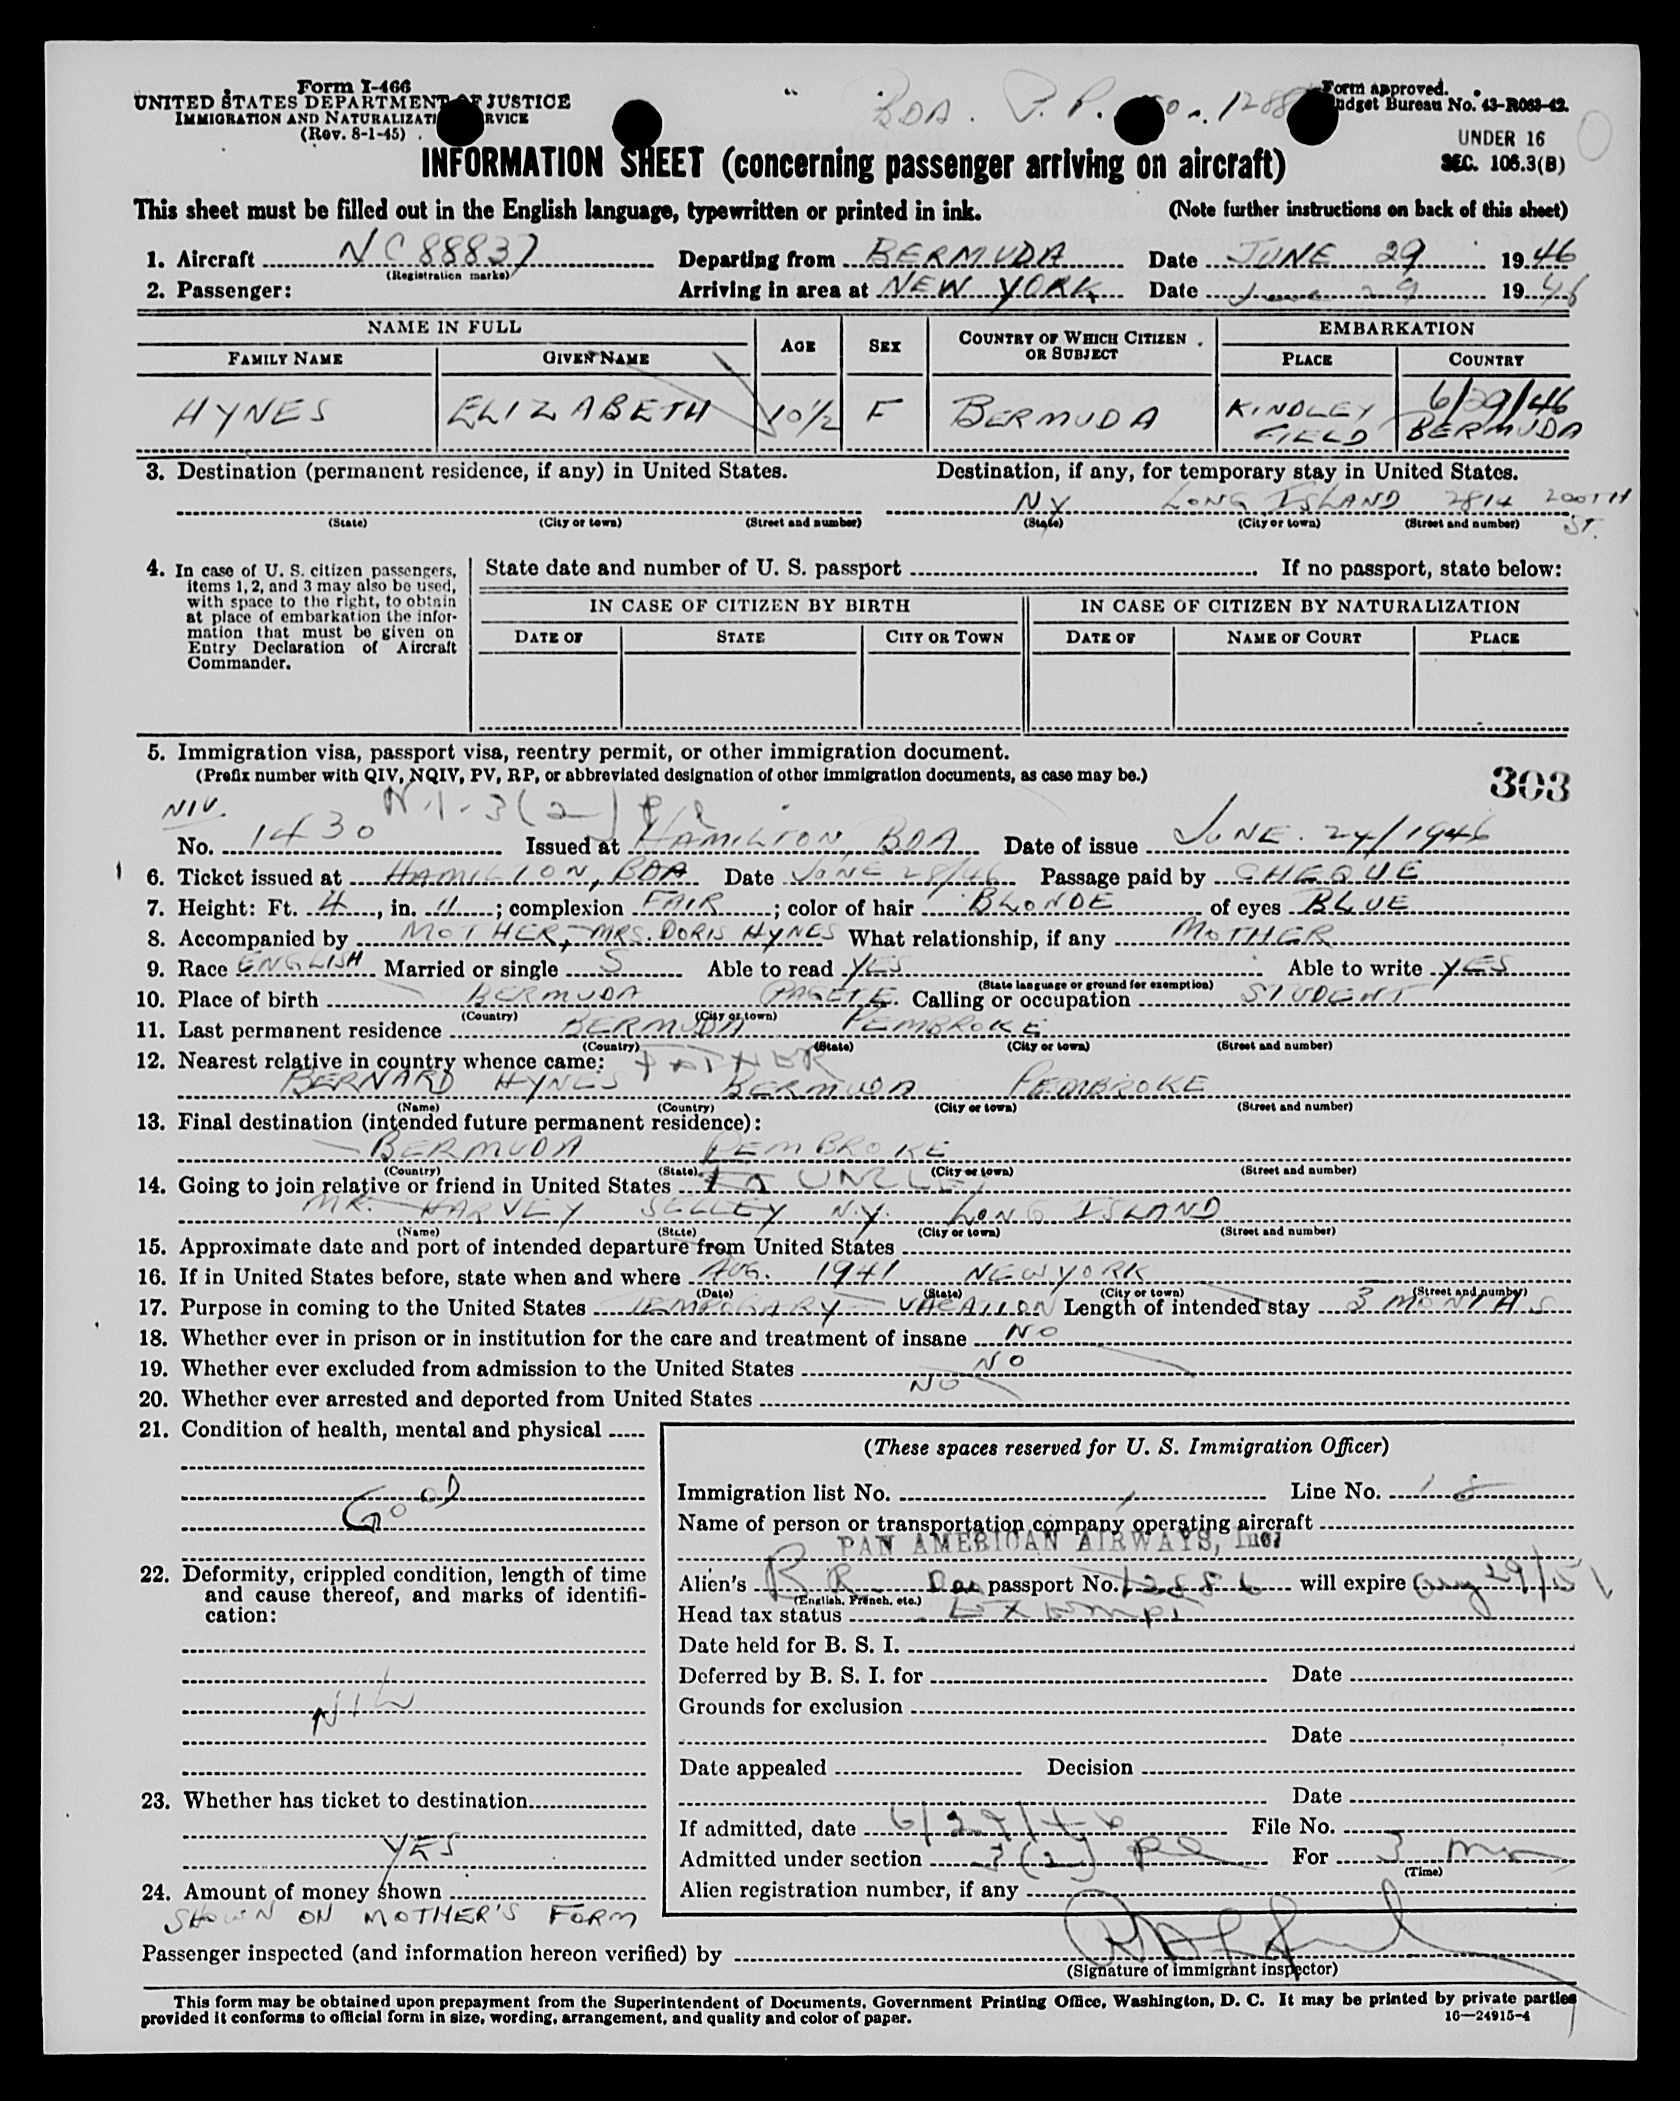 Form I-466
UNITED STATES DEPARTMENT OF JUSTICE
IMMIGRATION AND NATURALIZATION SERVICE
(Rev. 8-1-45)
BDA. P.P. No. 1288
Form approved.
Budget Bureau No. 43-R063-42.
UNDER 16
SEC. 105.3(B)
INFORMATION SHEET (concerning passenger arriving on aircraft)
This sheet must be filled out in the English language, typewritten or printed in ink. (Note further instructions on back of this sheet)
1. Aircraft NC 88837 Departing from BERMUDA Date JUNE 29 1946
(Registration marks)
2. Passenger: Arriving in area at NEW YORK Date June 29 1946
NAME IN FULL AGE SEX COUNTRY OF WHICH CITIZEN OR SUBJECT EMBARKATION
FAMILY NAME GIVEN NAME PLACE COUNTRY
6/29/46
HYNES ELIZABETH 10½ F BERMUDA KINDLEY FIELD BERMUDA
3. Destination (permanent residence, if any) in United States. Destination, if any, for temporary stay in United States.
NY LONG ISLAND 2814 200TH ST.
(State) (City or town) (Street and number) (State) (City or town) (Street and number)
4. In case of U. S. citizen passengers, items 1, 2, and 3 may also be used, with space to the right, to obtain at place of embarkation the information that must be given on Entry Declaration of Aircraft Commander.
State date and number of U. S. passport . If no passport, state below:
IN CASE OF CITIZEN BY BIRTH IN CASE OF CITIZEN BY NATURALIZATION
DATE OF STATE CITY OR TOWN DATE OF NAME OF COURT PLACE
5. Immigration visa, passport visa, reentry permit, or other immigration document.
(Prefix number with QIV, NQIV, PV, RP, or abbreviated designation of other immigration documents, as case may be.)
303
NIV. 3(2)
No. 1430 Issued at HAMILTON, BDA Date of issue JUNE. 24/1946
6. Ticket issued at HAMILTON, BDA Date JUNE 28/46 Passage paid by CHEQUE
7. Height: Ft. 4, in. 11; complexion FAIR; color of hair BLONDE of eyes BLUE
8. Accompanied by MOTHER, MRS. DORIS HYNES What relationship, if any MOTHER
9. Race ENGLISH Married or single S Able to read YES Able to write YES
(State language or ground for exemption)
10. Place of birth BERMUDA PAGET E. Calling or occupation STUDENT
(Country) (City or town)
11. Last permanent residence BERMUDA PEMBROKE
(Country) (State) (City or town) (Street and number)
12. Nearest relative in country whence came: FATHER
BERNARD HYNES BERMUDA PEMBROKE
(Name) (Country) (City or town) (Street and number)
13. Final destination (intended future permanent residence):
BERMUDA PEMBROKE
(Country) (State) (City or town) (Street and number)
14. Going to join relative or friend in United States UNCLE
MR. HARVEY SELLEY N.Y. LONG ISLAND
(Name) (State) (City or town) (Street and number)
15. Approximate date and port of intended departure from United States
16. If in United States before, state when and where AUG. 1941 NEW YORK
(Date) (State) (City or town) (Street and number)
17. Purpose in coming to the United States TEMPORARY VACATION Length of intended stay 3 MONTHS
18. Whether ever in prison or in institution for the care and treatment of insane NO
19. Whether ever excluded from admission to the United States NO
20. Whether ever arrested and deported from United States NO
21. Condition of health, mental and physical
GOOD
22. Deformity, crippled condition, length of time
and cause thereof, and marks of identifi-
cation:
NIL
23. Whether has ticket to destination
YES
24. Amount of money shown
SHOWN ON MOTHER'S FORM
(These spaces reserved for U. S. Immigration Officer)
Immigration list No. 1 Line No. 18
Name of person or transportation company operating aircraft
PAN AMERICAN AIRWAYS, Inc.
Alien's BR passport No. 12886 will expire 29/51
(English, French, etc.)
Head tax status Exempt
Date held for B. S. I.
Deferred by B. S. I. for Date
Grounds for exclusion
Date
Date appealed Decision
Date
If admitted, date 6/29/46 File No.
Admitted under section 3(2) For 3 mos
(Time)
Alien registration number, if any
Passenger inspected (and information hereon verified) by
(Signature of immigrant inspector)
This form may be obtained upon prepayment from the Superintendent of Documents, Government Printing Office, Washington, D. C. It may be printed by private parties
provided it conforms to official form in size, wording, arrangement, and quality and color of paper.
16—24915-4